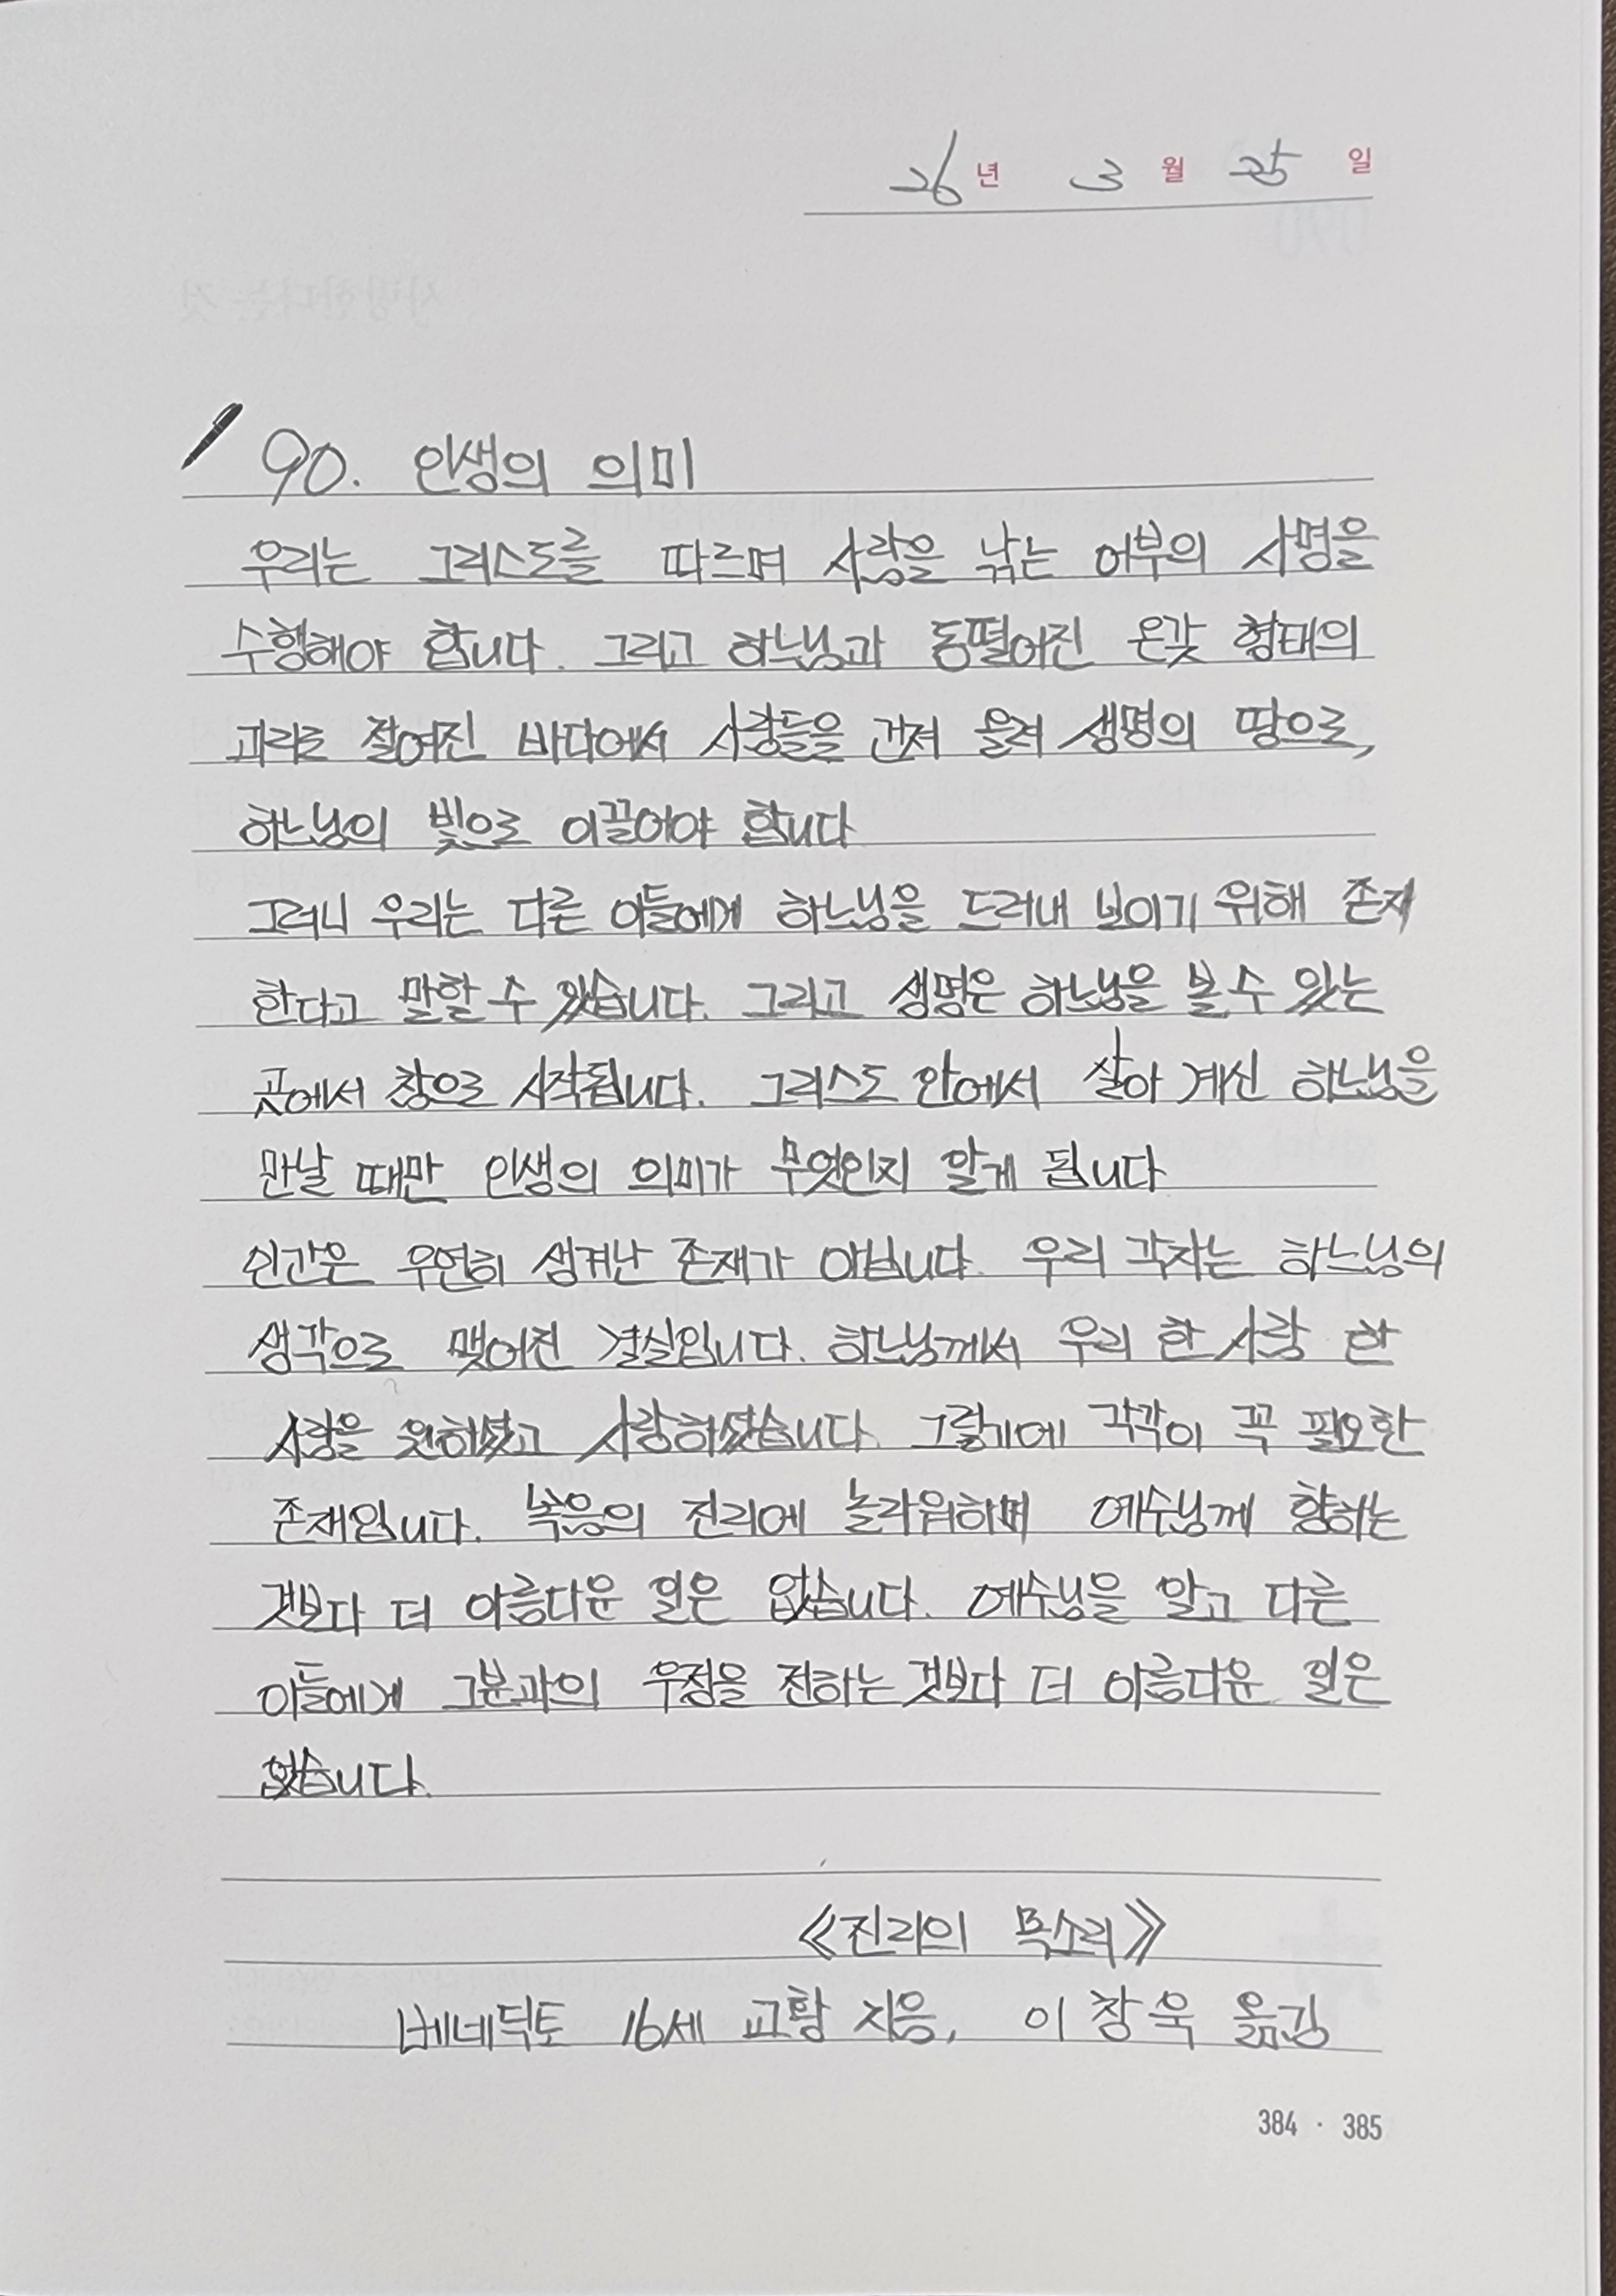 26년 3월 25일
90. 인생의 의미
우리는 그리스도를 따르며 사람을 낚는 어부의 사명을
수행해야 합니다. 그리고 하느님과 동떨어진 온갖 형태의
괴리로 절여진 바다에서 사람들을 건져 올려 생명의 땅으로,
하느님의 빛으로 이끌어야 합니다
그러니 우리는 다른 이들에게 하느님을 드러내 보이기 위해 존재
한다고 말할 수 있습니다. 그리고 생명은 하느님을 볼 수 있는
곳에서 참으로 시작됩니다. 그리스도 안에서 살아 계신 하느님을
만날 때만 인생의 의미가 무엇인지 알게 됩니다
인간은 우연히 생겨난 존재가 아닙니다. 우리 각자는 하느님의
생각으로 맺어진 결실입니다. 하느님께서 우리 한 사람 한
사람을 원하셨고 사랑하셨습니다. 그렇기에 각각이 꼭 필요한
존재입니다. 복음의 진리에 놀라워하며 예수님께 향하는
것보다 더 아름다운 일은 없습니다. 예수님을 알고 다른
이들에게 그분과의 우정을 전하는 것보다 더 아름다운 일은
없습니다.
《진리의 목소리》
베네딕토 16세 교황 지음, 이창욱 옮김
384 · 385